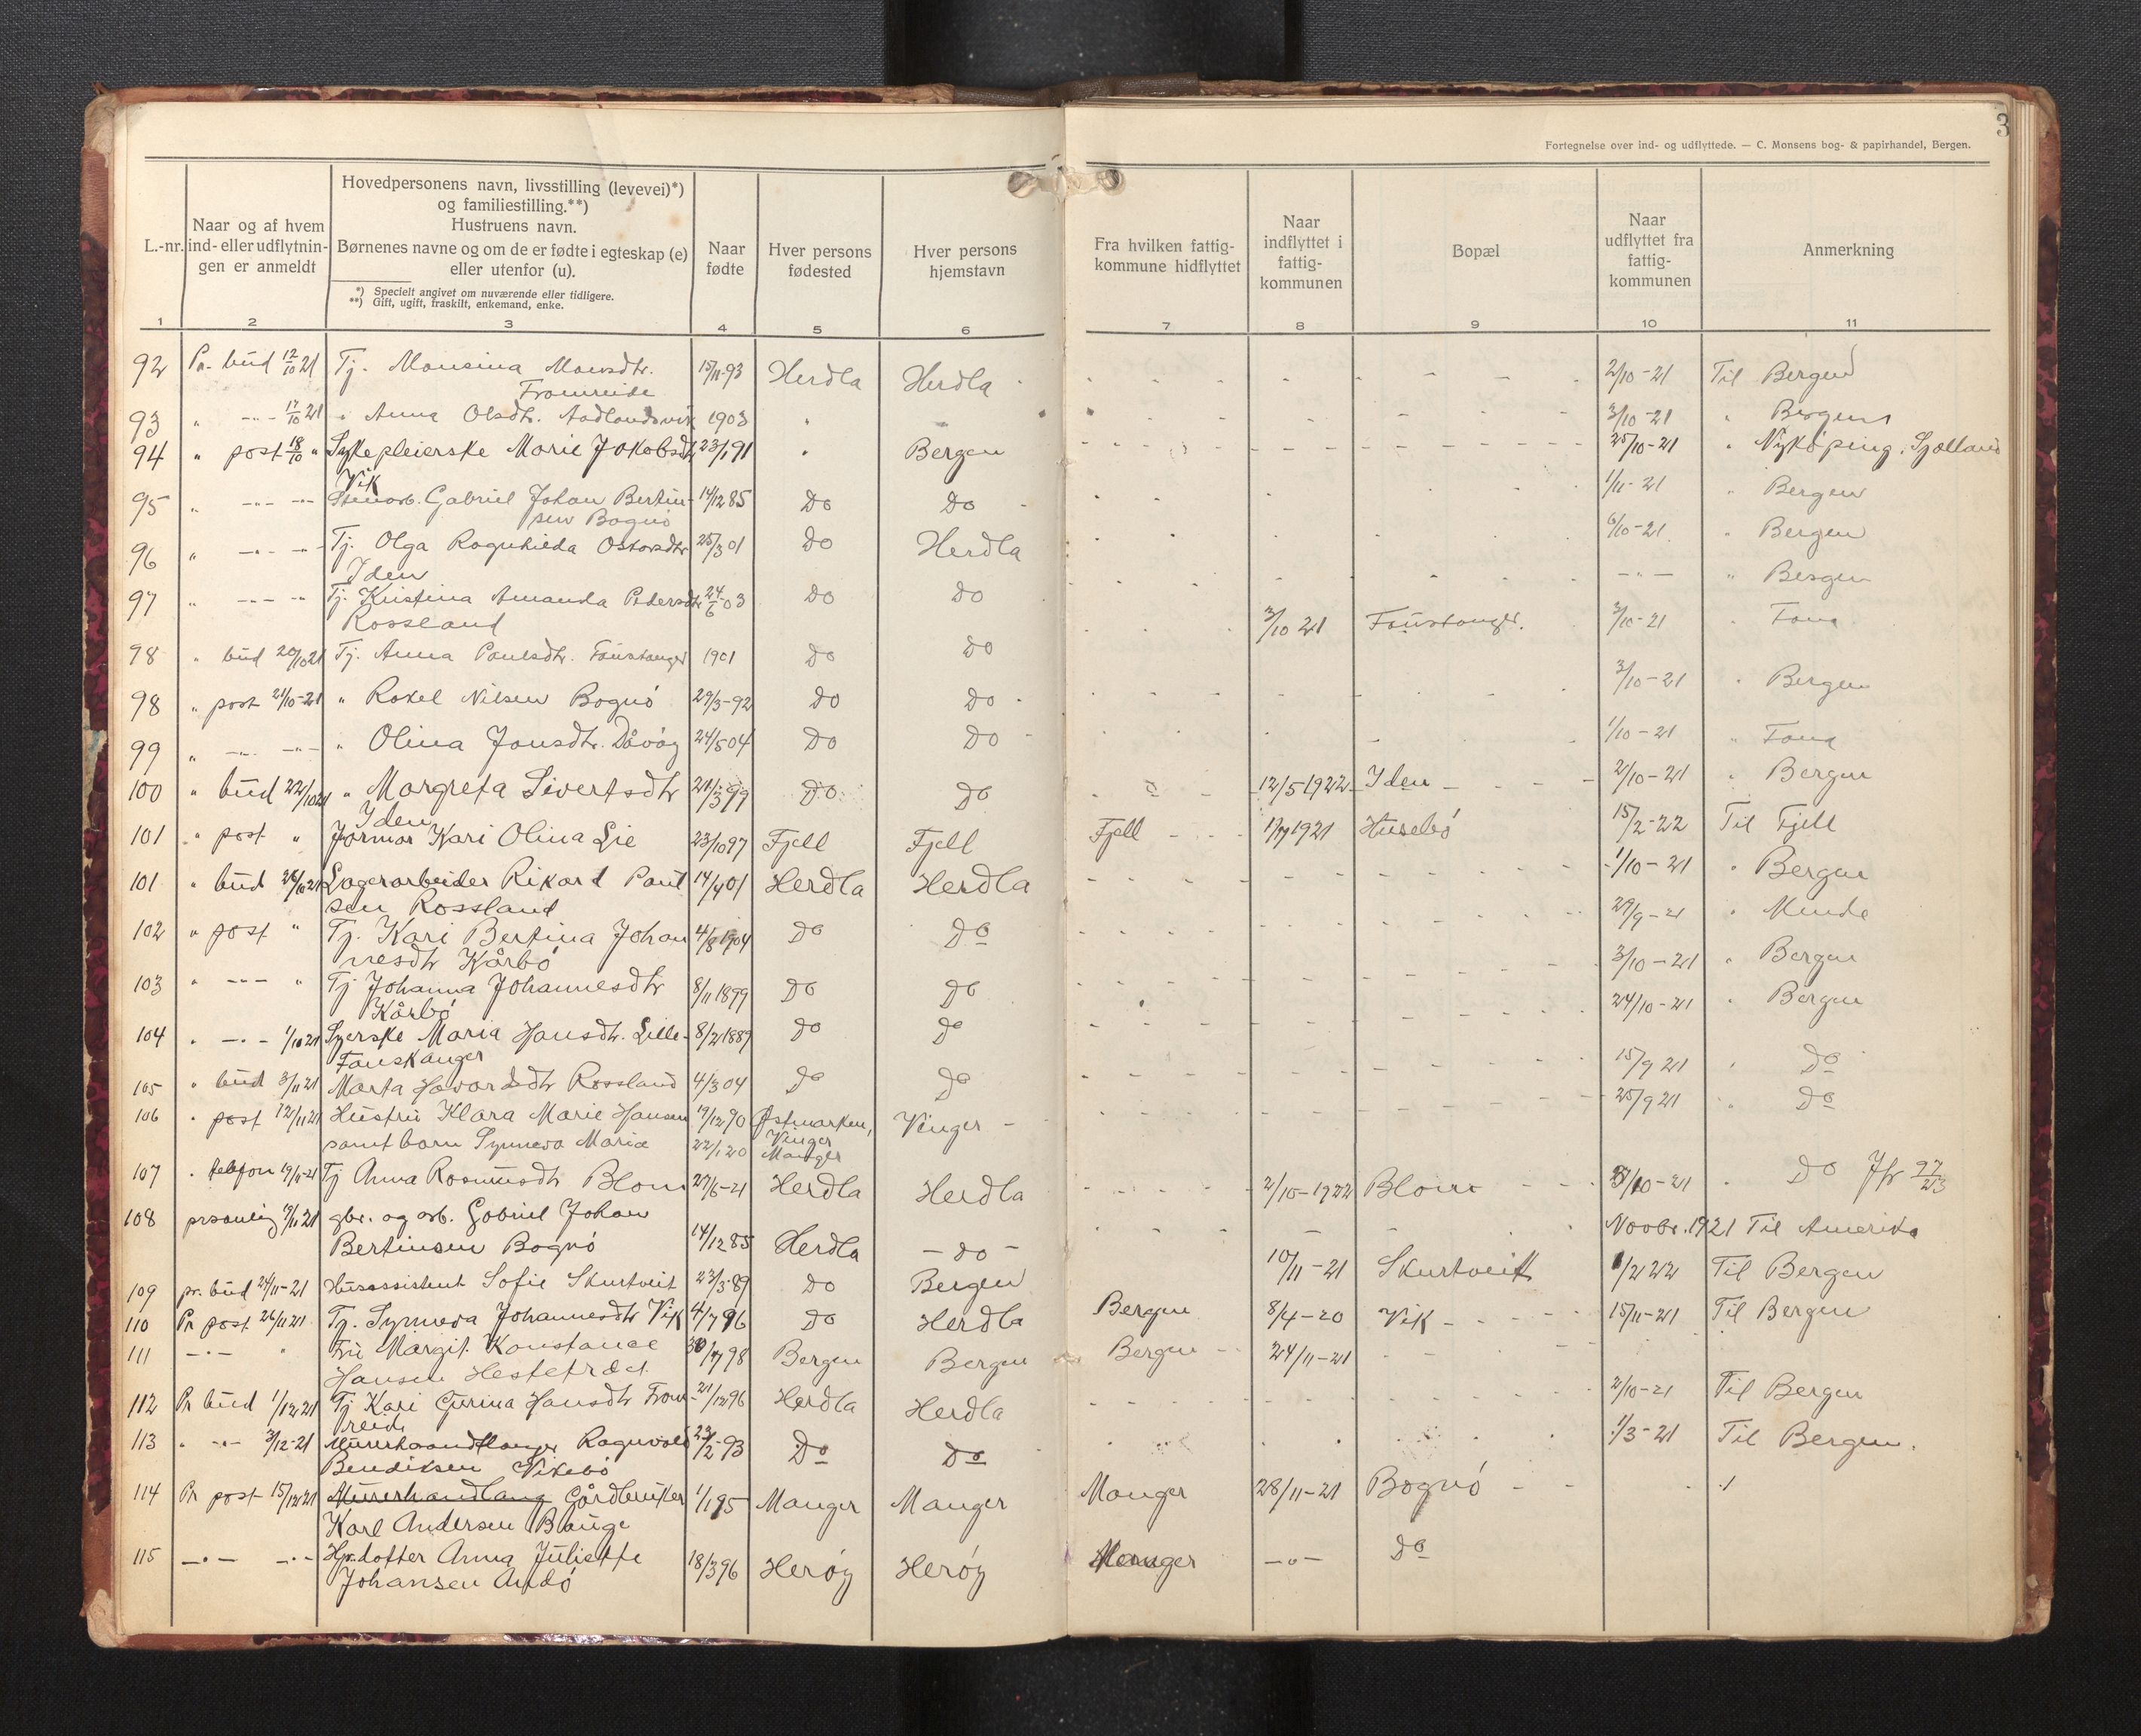 3
Fortegnelse over ind- og udflyttede. — C. Monsens bog- & papirhandel, Bergen.
L.-nr.
Naar og af hvem ind- eller udflytnin- gen er anmeldt
Hovedpersonens navn, livsstilling (levevei)*)
og familiestilling.**)
Hustruens navn.
Børnenes navne og om de er fødte i egteskap (e)
eller utenfor (u).
*) Specielt angivet om nuværende eller tidligere.
**) Gift, ugift, fraskilt, enkemand, enke.
Naar fødte
Hver persons fødested
Hver persons hjemstavn
Fra hvilken fattig- kommune hidflyttet
Naar indflyttet i fattig- kommunen
Bopæl
Naar udflyttet fra fattig- kommunen
Anmerkning
1 2 3 4 5 6 7 8 9 10 11
92 Pr. bud 12/10 21 Tj. Monsina Monsdtr. 15/11-93 Herdla Herdla 2/10-21 Til Bergen
Fromreide
93 " -"- 17/10 21 " Anna Olsdtr. Aadlandsvik 1903 " 3/10-21 " Bergen
94 " post 18/10 " Sykepleierske Marie Jakobsdtr 23/1 91 " Bergen 25/10-21 " Nykøping, Sjælland
Vik
95 " -"- -"- Stenarb. Gabriel Johan Bertin- 14/12 85 Do Do 1/11-21 " Bergen
sen Bognö
96 " -"- -"- Tj. Olga Ragnhilda Ostersdtr 25/3 01 Do Herdla 6/10-21 " Bergen
Iden
97 " -"- -"- Tj. Kristina Amanda Pedersdtr 24/6-03 Do Do -"- " Bergen
Rossland
98 " bud 20/10 21 Tj. Anna Paulsdtr. Fauskanger 1901 Do Do 3/10 21 Fauskanger. 3/10-21 " Fana
98 " post 21/10-21 " Rakel Nilsen Bognö 29/3-92 Do Do 3/10-21 " Bergen
99 " -"- -"- " Olina Jonsdtr. Dåvöy 24/5 04 Do Do 1/10-21 " Fana
100 " bud 22/10 21 " Margreta Sivertsdtr 21/3 99 Do Do 12/5 1922 Iden 2/10-21 " Bergen
Iden
101 " post " Jormor Kari Olina Lie 23/10 97 Fjell Fjell Fjell 1921 Husebö 15/2-22 Til Fjell
101 " bud 26/10 21 Lagerarbeider Rikard Paul 14/4 01 Herdla Herdla 1/10-21 " Bergen
sen Rossland
102 " post " Tj. Kari Bertina Johan 4/8 1904 Do Do 29/9-21 " Minde
nesdtr Kårbö
103 " -"- " Tj Johanna Johannesdtr 8/11 1899 Do Do 3/10-21 " Bergen
Kårbö
104 " -"- 1/11 21 Syerske Maria Hansdtr. Lille- 8/2 1889 Do Do 24/10-21 " Bergen
Fauskanger
105 " bud 3/11 21 Marta Havardsdtr Rossland 4/3 04 Do Do 15/9 21 " Do
106 " post 12/11 21 Hustru Klara Marie Hansen 19/12 90 Østmarken, Vinger 25/9 21 " Do
samt barn Synneva Marie 22/1 20 Vinger
Manger
107 " telefon 19/11-21 Tj Anna Rasmusdtr Blom 27/6-21 Herdla Herdla 2/10-1922 Blom /10-21 " Do Jfr 97/23
108 personlig 19/11 21 gbr. og arb. Gabriel Johan
Bertinsen Bognö 14/12 85 Herdla - do - Novbr. 1921 Til Amerika
109 pr. bud 24/11-21 Husassistent Sofie Skurtveit 23/3-89 Do Bergen 10/11-21 Skurtveit 1/2 22 Til Bergen
110 Pr post 26/11 21 Tj. Synneva Johannesdtr Vik 4/7 96 Do Herdla Bergen 8/4-20 Vik 15/11-21 Til Bergen
111 -"- " Fru Margit Konstance 30/ 98 Bergen Bergen Bergen 24/11-21
Hansen Hestetræet
112 Pr bud 1/12 21 Tj Kari Gurina Hansdtr From- 21/12 96 Herdla Herdla 2/10-21 Til Bergen
reide
113 " -"- 3/12-21 Murerhaandlanger Ragnvald 23/2-93 Do Do 1/3-21 Til Bergen.
Bendiksen Vikebö
114 Pr post 15/12 21 Murerhandlang Gårdbruker 1/1 95 Manger Manger Manger 28/11-21 Bognö
Karl Andersen Bauge
115 -"- -"- Hp.dotter Anna Juliette 18/3 96 Heröy Heröy Manger -"- Do
Johansen Andö